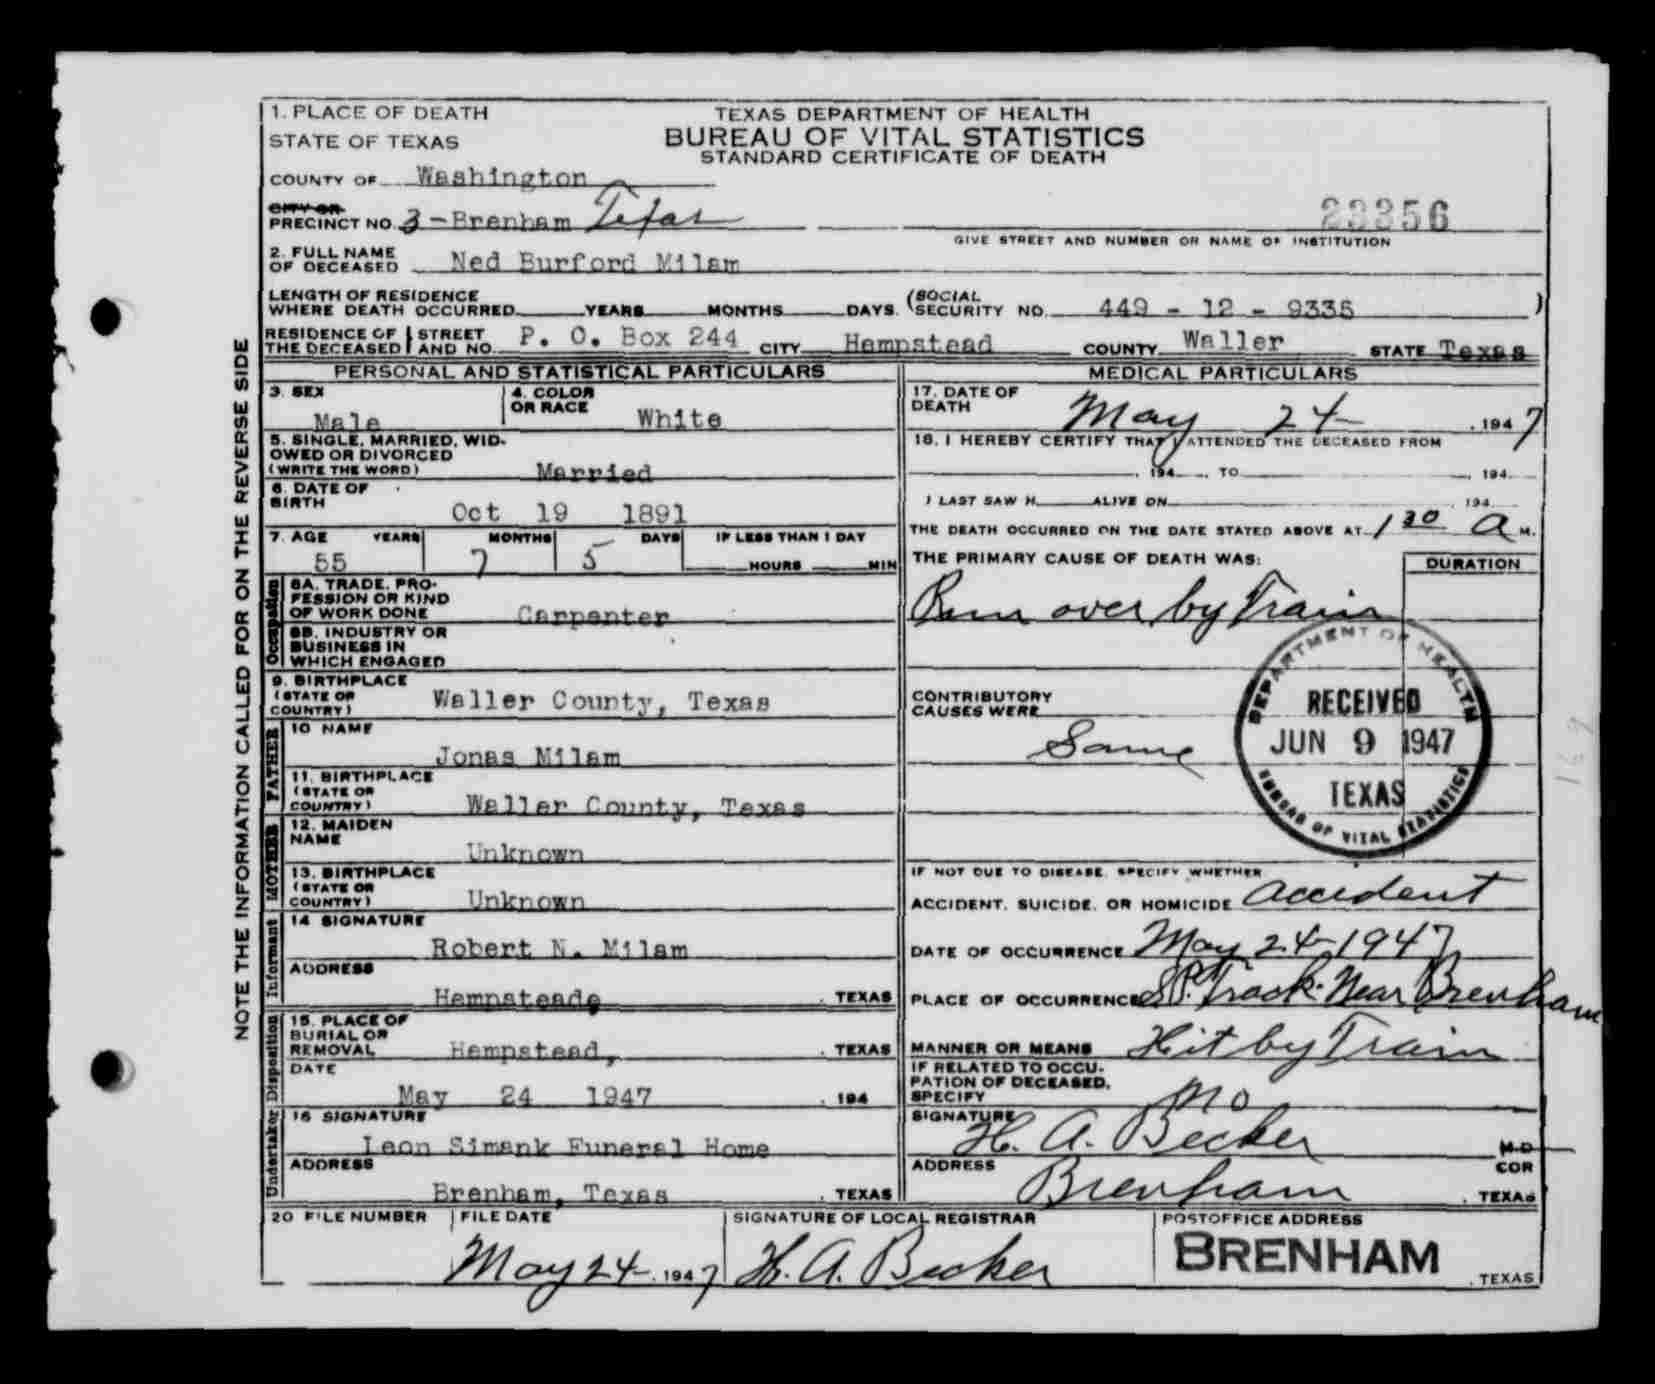 1. PLACE OF DEATH
STATE OF TEXAS
TEXAS DEPARTMENT OF HEALTH
BUREAU OF VITAL STATISTICS
STANDARD CERTIFICATE OF DEATH
COUNTY OF Washington
CITY OR
PRECINCT NO. 3 - Brenham Texas
23356
GIVE STREET AND NUMBER OR NAME OF INSTITUTION
2. FULL NAME
OF DECEASED Ned Burford Milam
LENGTH OF RESIDENCE
WHERE DEATH OCCURRED YEARS MONTHS DAYS. (SOCIAL
SECURITY NO. 449 - 12 - 9335 )
RESIDENCE OF THE DECEASED STREET AND NO. P. O. Box 244 CITY Hempstead COUNTY Waller STATE Texas
PERSONAL AND STATISTICAL PARTICULARS
3. SEX Male
4. COLOR OR RACE White
5. SINGLE, MARRIED, WID-
OWED OR DIVORCED
(WRITE THE WORD) Married
6. DATE OF
BIRTH Oct 19 1891
7. AGE YEARS MONTHS DAYS IF LESS THAN 1 DAY
55 7 5 HOURS MIN
Occupation
8A. TRADE, PRO-
FESSION OR KIND
OF WORK DONE Carpenter
8B. INDUSTRY OR
BUSINESS IN
WHICH ENGAGED
9. BIRTHPLACE
(STATE OR
COUNTRY) Waller County, Texas
FATHER
10 NAME
Jonas Milam
11. BIRTHPLACE
(STATE OR
COUNTRY) Waller County, Texas
MOTHER
12. MAIDEN
NAME Unknown
13. BIRTHPLACE
(STATE OR
COUNTRY) Unknown
Informant
14 SIGNATURE
Robert N. Milam
ADDRESS
Hempstead, , TEXAS
Disposition
15. PLACE OF
BURIAL OR
REMOVAL Hempstead, , TEXAS
DATE
May 24 1947 , 194
Undertaker
16 SIGNATURE
Leon Simank Funeral Home
ADDRESS
Brenham, Texas , TEXAS
MEDICAL PARTICULARS
17. DATE OF
DEATH May 24 , 1947
18. I HEREBY CERTIFY THAT I ATTENDED THE DECEASED FROM
, 194 , TO , 194
I LAST SAW H ALIVE ON , 194
THE DEATH OCCURRED ON THE DATE STATED ABOVE AT 1 30 A M.
THE PRIMARY CAUSE OF DEATH WAS: DURATION
Run over by Train
CONTRIBUTORY
CAUSES WERE
Same
DEPARTMENT OF HEALTH
RECEIVED
JUN 9 1947
TEXAS
BUREAU OF VITAL STATISTICS
IF NOT DUE TO DISEASE, SPECIFY WHETHER
ACCIDENT, SUICIDE, OR HOMICIDE Accident
DATE OF OCCURRENCE May 24 1947
PLACE OF OCCURRENCE S.P. Track. Near Brenham
MANNER OR MEANS Hit by Train
IF RELATED TO OCCU-
PATION OF DECEASED,
SPECIFY No
SIGNATURE H. A. Becker M.D
COR
ADDRESS Brenham , TEXAS
20 FILE NUMBER
FILE DATE
May 24 , 1947
SIGNATURE OF LOCAL REGISTRAR
H. A. Becker
POSTOFFICE ADDRESS
BRENHAM
, TEXAS
NOTE THE INFORMATION CALLED FOR ON THE REVERSE SIDE